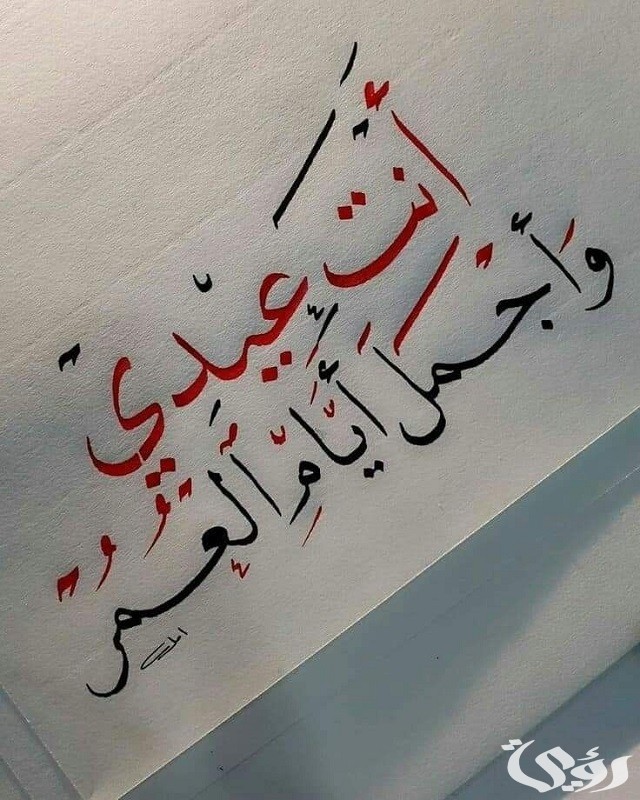 أنتَ عيدي
وَأجمل أيَّامِ العمر
رؤية